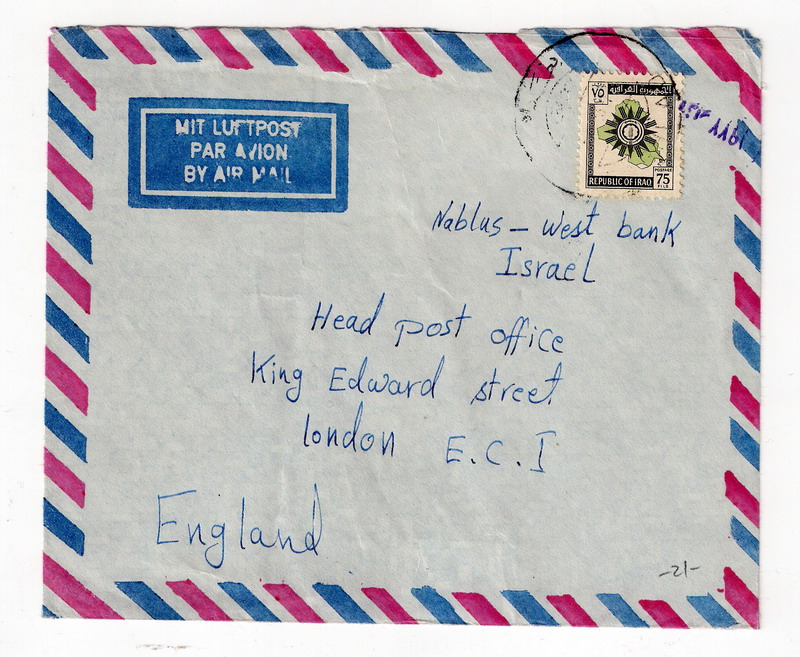 MIT LUFTPOST
PAR AVION
BY AIR MAIL
الجمهورية العراقية
٧٥
POSTAGE
75
FILS
REPUBLIC OF IRAQ
Nablus - West bank
Israel
Head post office
King Edward street
london E.C.I
England
-21-